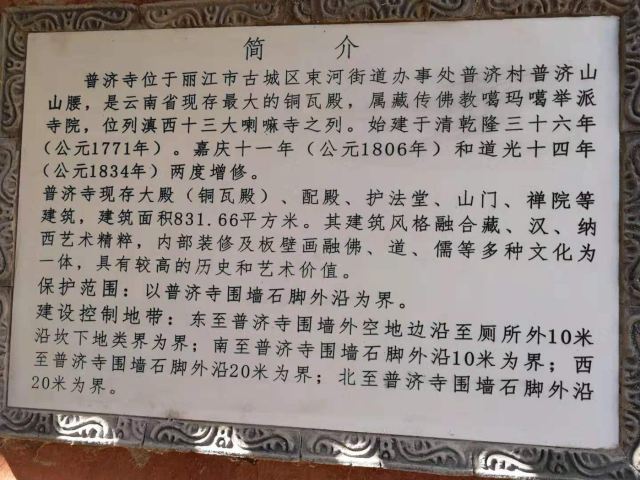 简 介
普济寺位于丽江市古城区束河街道办事处普济村普济山
山腰，是云南省现存最大的铜瓦殿，属藏传佛教噶玛噶举派
寺院，位列滇西十三大喇嘛寺之列。始建于清乾隆三十六年
（公元1771年）。嘉庆十一年（公元1806年）和道光十四年
（公元1834年）两度增修。
普济寺现存大殿（铜瓦殿）、配殿、护法堂、山门、禅院等
建筑，建筑面积831.66平方米。其建筑风格融合藏、汉、纳
西艺术精粹，内部装修及板壁画融佛、道、儒等多种文化为
一体，具有较高的历史和艺术价值。
保护范围：以普济寺围墙石脚外沿为界。
建设控制地带：东至普济寺围墙外空地边沿至厕所外10米
沿坎下地类界为界；南至普济寺围墙石脚外沿10米为界；西
至普济寺围墙石脚外沿20米为界；北至普济寺围墙石脚外沿
20米为界。